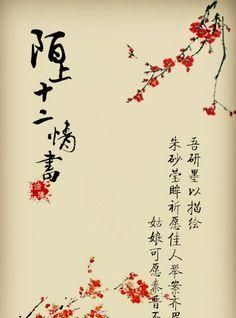 陌上十二情書
吾研墨以描绘
朱砂莹眸祈愿佳人举案齐眉
姑娘可愿秦晋不